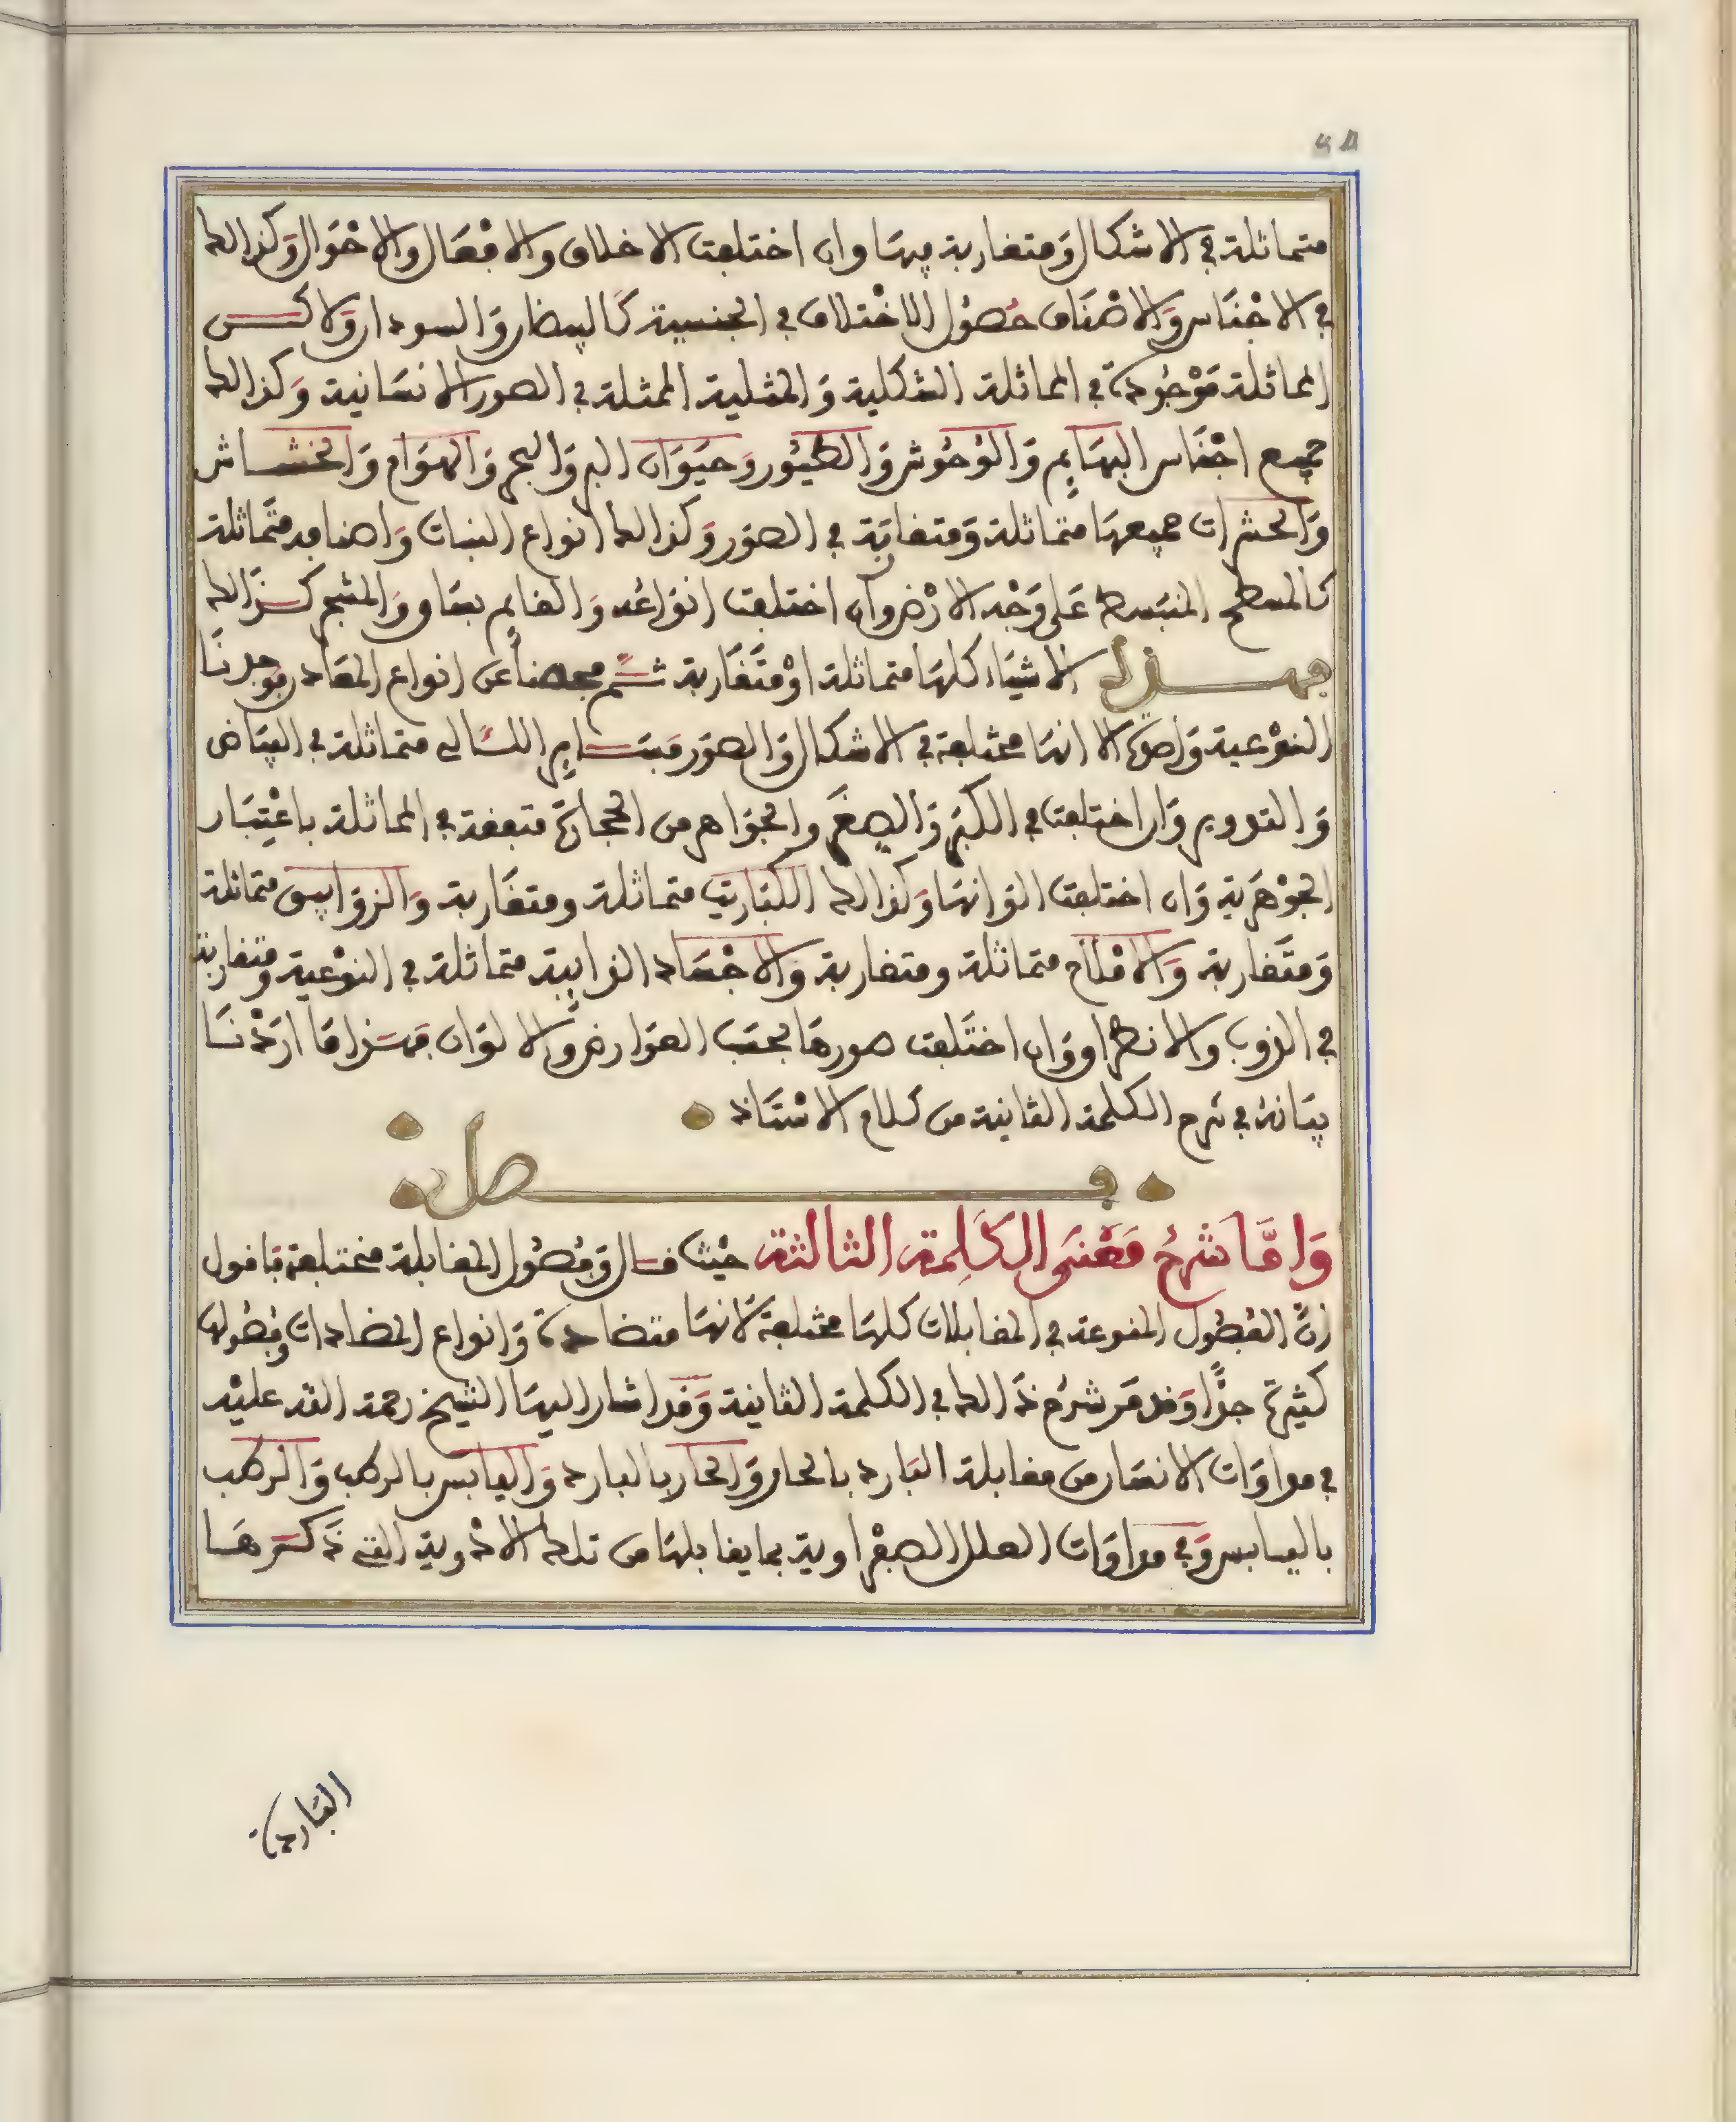 متماثلة في الاشكال ومتقاربة فيها وان اختلفت الاخلاق والافعال والاحوال وكذالك
في الاجناس والاصناف حصول الاختلاف في الجنسية كالبيضان والسودان ولاكن
المماثلة موجودة في المماثلة الشكلية والمثلية الممثلة في الصور الانسانية وكذالك
جميع اجناس البهايم والوحوش والطيور وحيوان البر والبحر والهوام والخشاش
والحشرات جميعها متماثلة ومتقاربة في الصور وكذالك انواع النبات واصنافه متماثلة
كالمسطح المنبسط على وجه الارض وان اختلفت انواعه والقايم بساق والشجر كذالك
فهذه الاشياء كلها متماثلة او متقاربة ثم فحصنا عن انواع المعادن فوجدنا
النوعية واحدة الا انها مختلفة في الاشكال والصور فساير اللئالى متماثلة في البياض
والتدوير وان اختلفت في الكبر والصغر والجواهر من الحجارة متفقة في المماثلة باعتبار
الجوهرية وان اختلفت الوانها وكذالك الكباريت متماثلة ومتقاربة والزوابيق متماثلة
ومتقاربة والاملاح متماثلة ومتقاربة والاجساد الذايبة متماثلة في النوعية ومتقاربة
في الذوب والانطراق وان اختلفت صورها بحسب العوارض والالوان فهذا ما اردنا
بيانه في شرح الكلمة الثانية من كلام الاستاذ
فصل
واما شرح معنى الكلمة الثالثة حيث قال وفصول المقابلة مختلفة فاقول
ان الفصول المنوعة في المقابلات كلها مختلفة لانها متضادة وانواع المضادات وفصولها
كثيرة جدا وقد مر شرح ذالك في الكلمة الثانية وقد اشار اليها الشيخ رحمة الله عليه
في مداوات الانسان من مقابلة البارد بالحار والحار بالبارد واليابس بالرطب والرطب
باليابس وفي مداوات العلل الصفراوية بما يقابلها من تلك الادوية التي ذكرها
الباردة